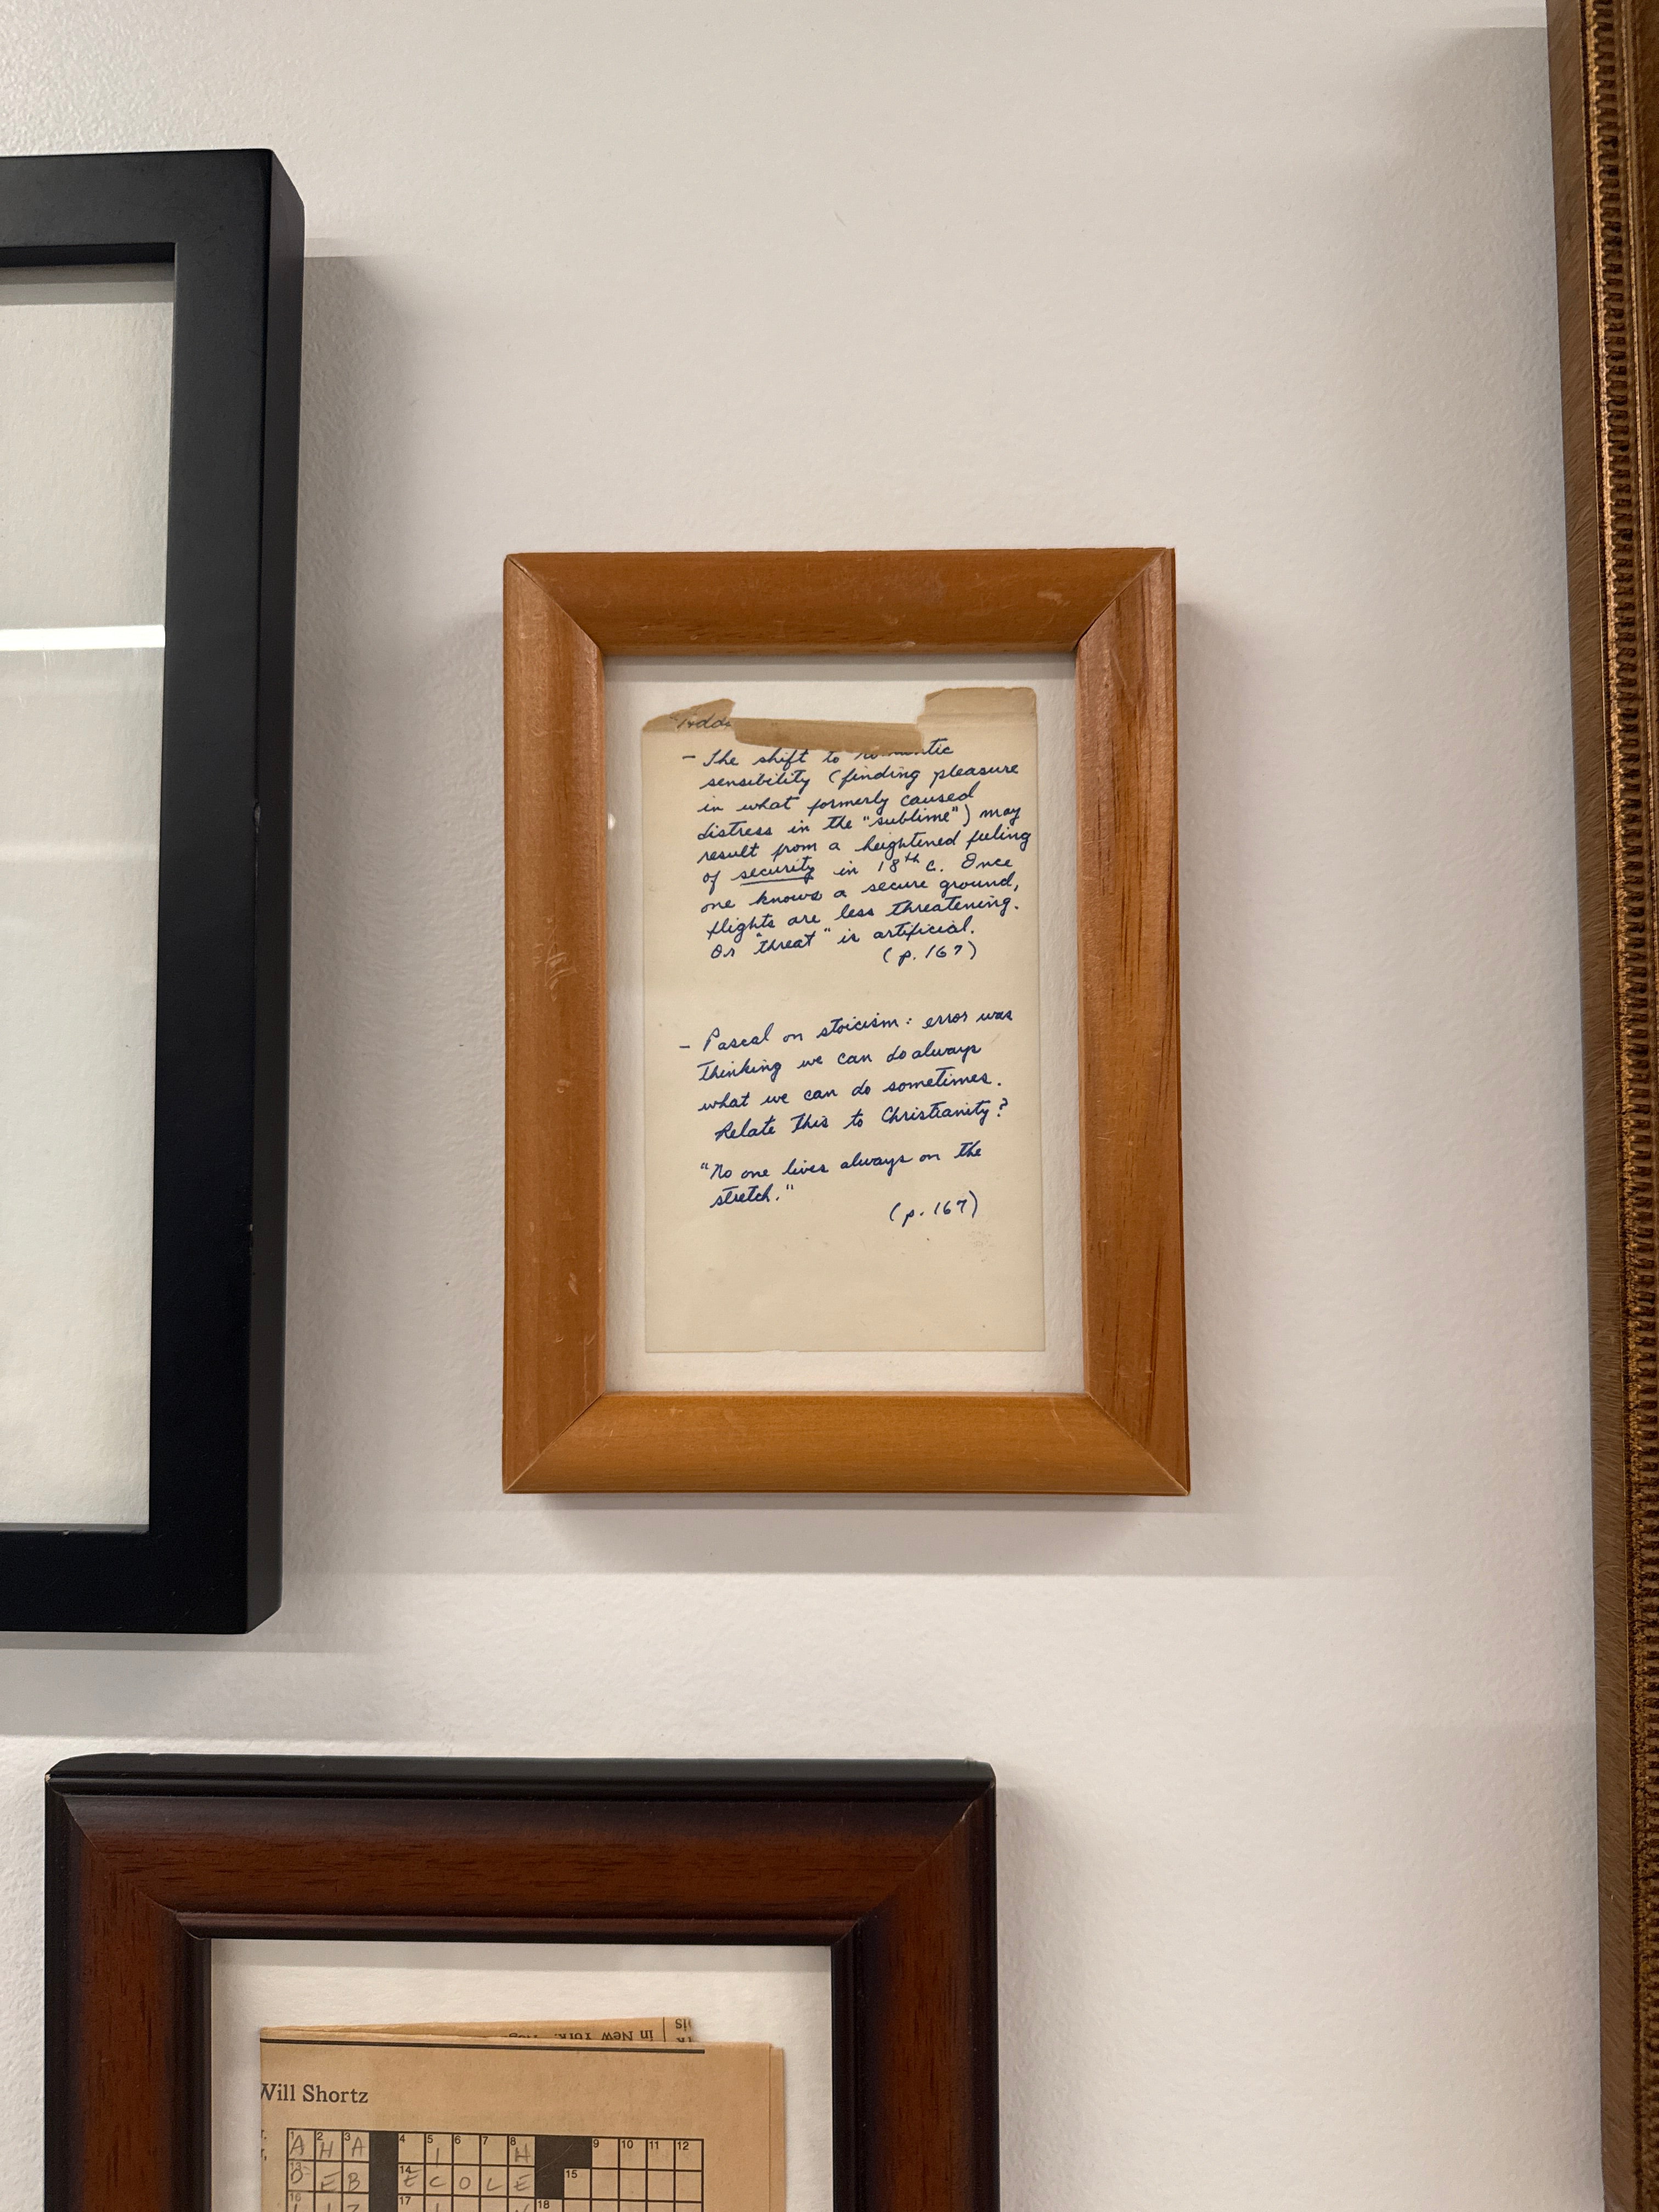 – The shift to romantic
sensibility (finding pleasure
in what formerly caused
distress in the "sublime") may
result from a heightened feeling
of security in 18th C. Once
one knows a secure ground,
flights are less threatening.
Or "threat" is artificial.
(p. 167)
– Pascal on stoicism: error was
thinking we can do always
what we can do sometimes.
Relate this to Christianity?
"No one lives always on the
stretch."
(p. 167)
in New York.
Will Shortz
1 2 3 4 5 6 7 8 9 10 11 12
A H A I H
13 14 15
D E B E C O L E
16 17 18